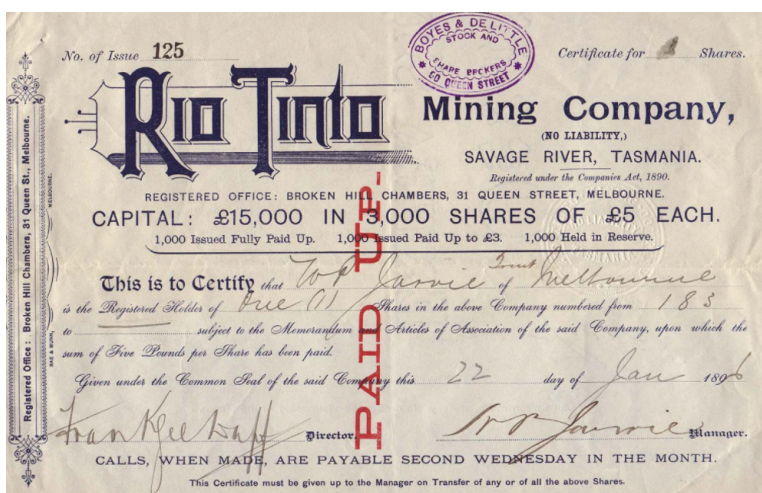 No. of Issue 125
Certificate for 1 Shares.
BOYES & DELITTLE
STOCK AND
SHARE BROKERS
60 QUEEN STREET
RIO TINTO Mining Company,
(NO LIABILITY,)
SAVAGE RIVER, TASMANIA.
Registered under the Companies Act, 1890.
REGISTERED OFFICE: BROKEN HILL CHAMBERS, 31 QUEEN STREET, MELBOURNE.
CAPITAL: £15,000 IN 3,000 SHARES OF £5 EACH.
1,000 Issued Fully Paid Up. 1,000 Issued Paid Up to £3. 1,000 Held in Reserve.
This is to Certify that W P Jarvie of Melbourne
is the Registered Holder of One (1) Shares in the above Company numbered from 183
to subject to the Memorandum and Articles of Association of the said Company, upon which the
sum of Five Pounds per Share has been paid.
Given under the Common Seal of the said Company this 22 day of Jan 1896
Director. W P Jarvie Manager.
CALLS, WHEN MADE, ARE PAYABLE SECOND WEDNESDAY IN THE MONTH.
This Certificate must be given up to the Manager on Transfer of any or of all the above Shares.
PAID UP
Registered Office: Broken Hill Chambers, 31 Queen St., Melbourne.
MELBOURNE.